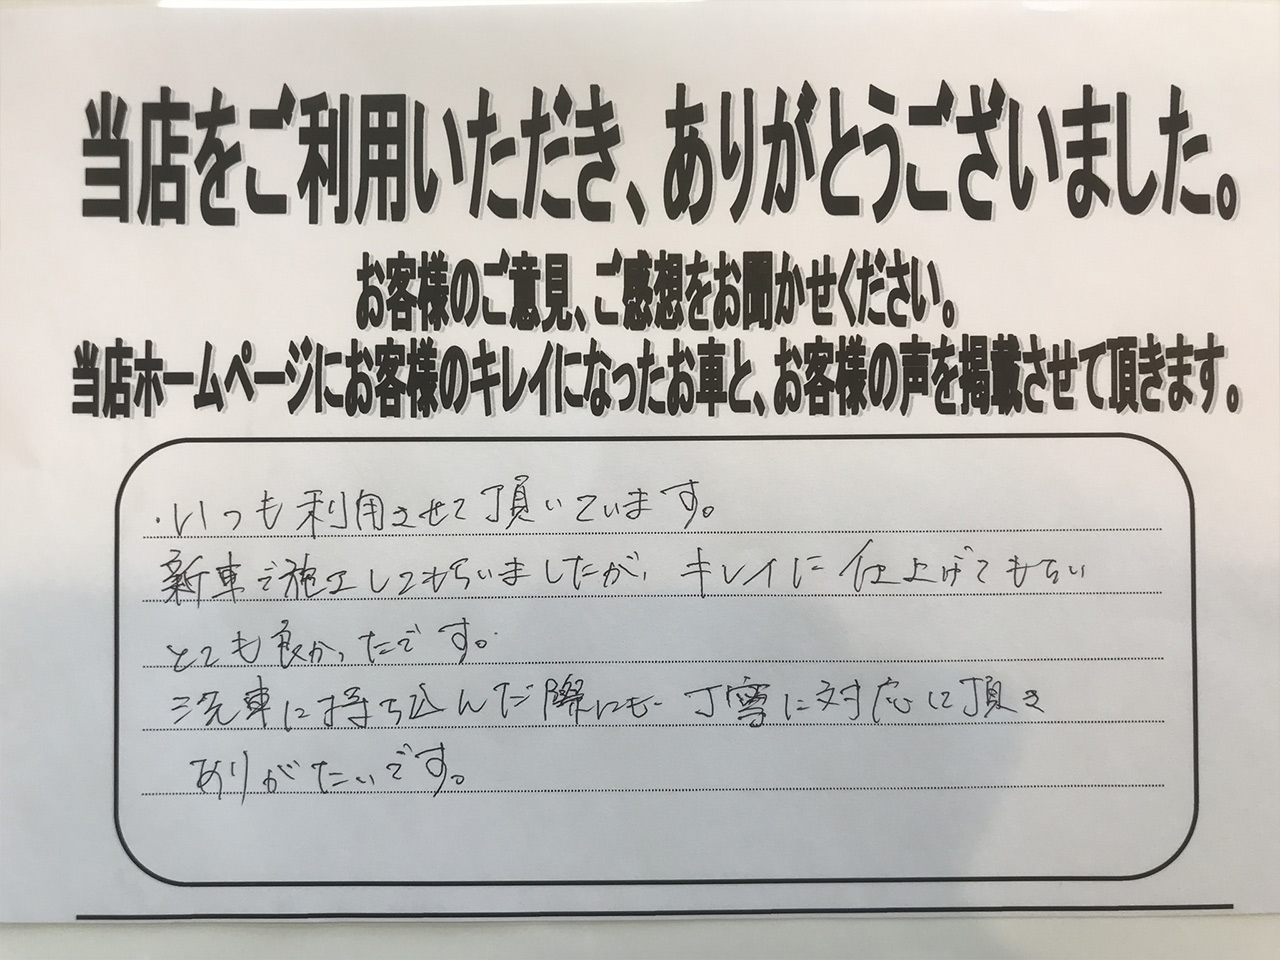 当店をご利用いただき、ありがとうございました。
お客様のご意見、ご感想をお聞かせください。
当店ホームページにお客様のキレイになったお車と、お客様の声を掲載させて頂きます。
・いつも利用させて頂いています。
新車で施工してもらいましたが、キレイに仕上げてもらい
とても良かったです。
洗車に持ち込んだ際にも丁寧に対応して頂き
ありがたいです。